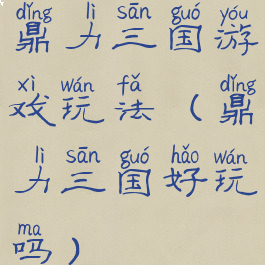 dǐng lì sān guó yóu
鼎力三国游
xì wán fǎ dǐng
戏玩法（鼎
lì sān guó hǎo wán
力三国好玩
ma
吗）